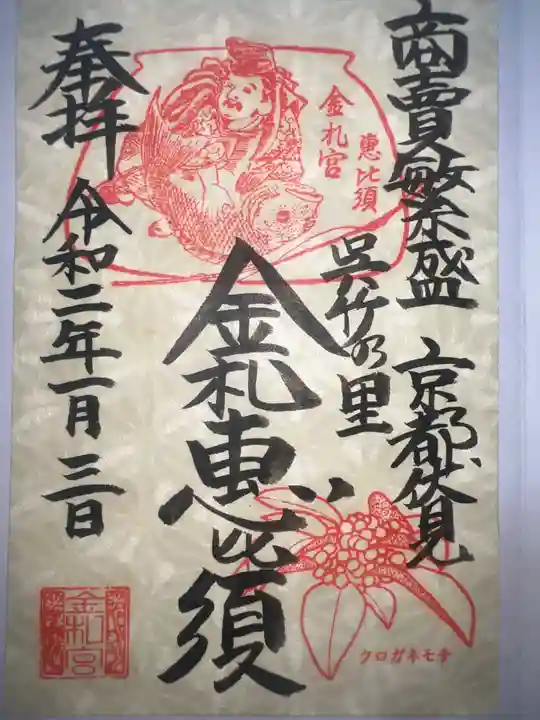 商賣繁盛 京都伏見
呉竹の里
金札宮
恵比須
金札恵比須
奉拝 令和二年一月三日
クロガネモチ
金札宮